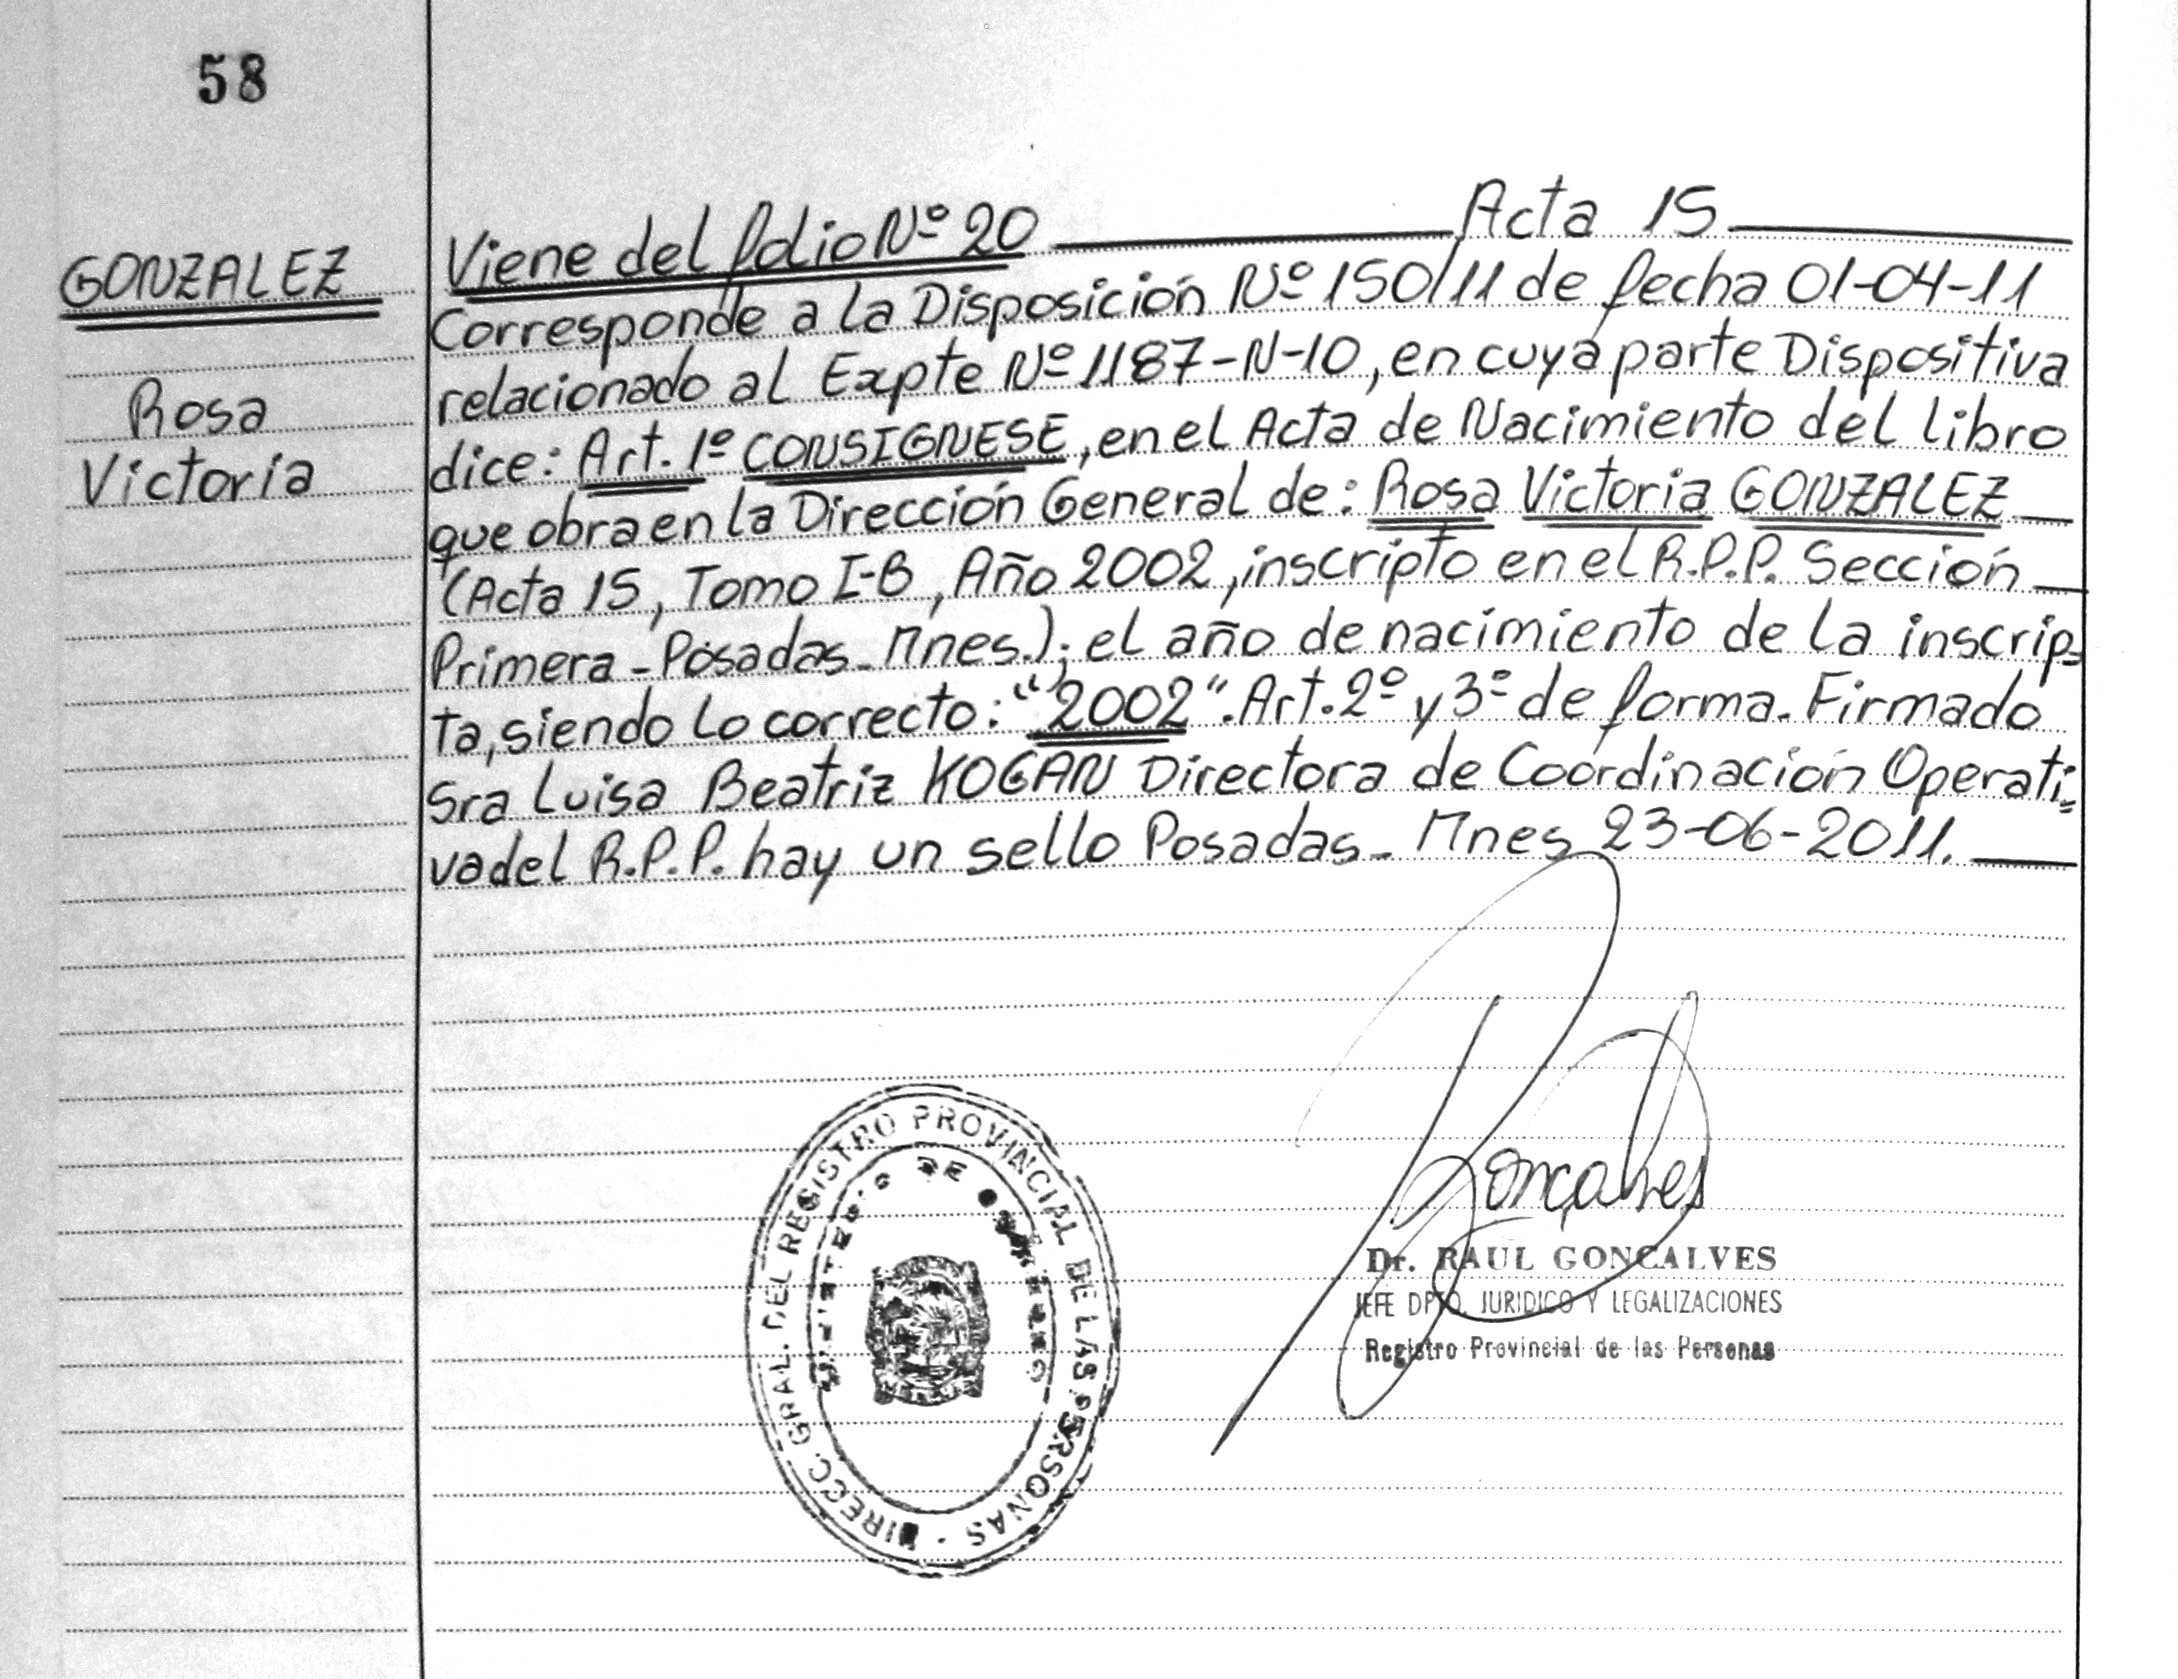 58
GONZALEZ
Rosa
Victoria
Viene del folio Nº 20 Acta 15
Corresponde a la Disposición Nº 150/11 de fecha 01-04-11
relacionado al Expte Nº 1187-N-10, en cuya parte Dispositiva
dice: Art. 1º CONSIGNESE, en el Acta de Nacimiento del libro
que obra en la Dirección General de: Rosa Victoria GONZALEZ
(Acta 15, Tomo I-B, Año 2002, inscripto en el R.P.P. Sección
Primera - Posadas - Mnes.); el año de nacimiento de la inscrip=
ta, siendo lo correcto: "2002". Art. 2º y 3º de forma. Firmado
Sra Luisa Beatriz KOGAN Directora de Coordinación Operati=
va del R.P.P. hay un sello Posadas - Mnes 23-06-2011.
DIRECC. GRAL. DEL REGISTRO PROVINCIAL DE LAS PERSONAS -
DE
Gonçalves
Dr. RAUL GONCALVES
JEFE DPTO. JURIDICO Y LEGALIZACIONES
Registro Provincial de las Personas